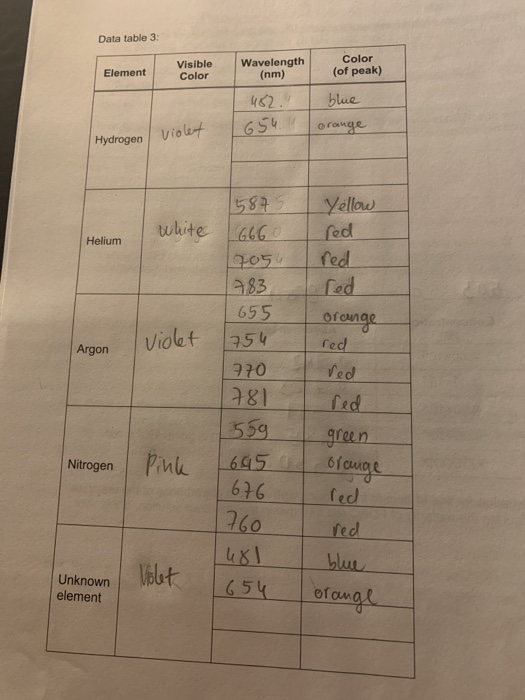 Data table 3:
Element Visible Color Wavelength (nm) Color (of peak)
Hydrogen violet 482. blue
654 orange
Helium white 587 Yellow
666 red
705 red
783 red
Argon Violet 655 orange
754 red
770 red
781 red
Nitrogen Pink 559 green
645 orange
676 red
760 red
Unknown element Violet 481 blue
654 orange